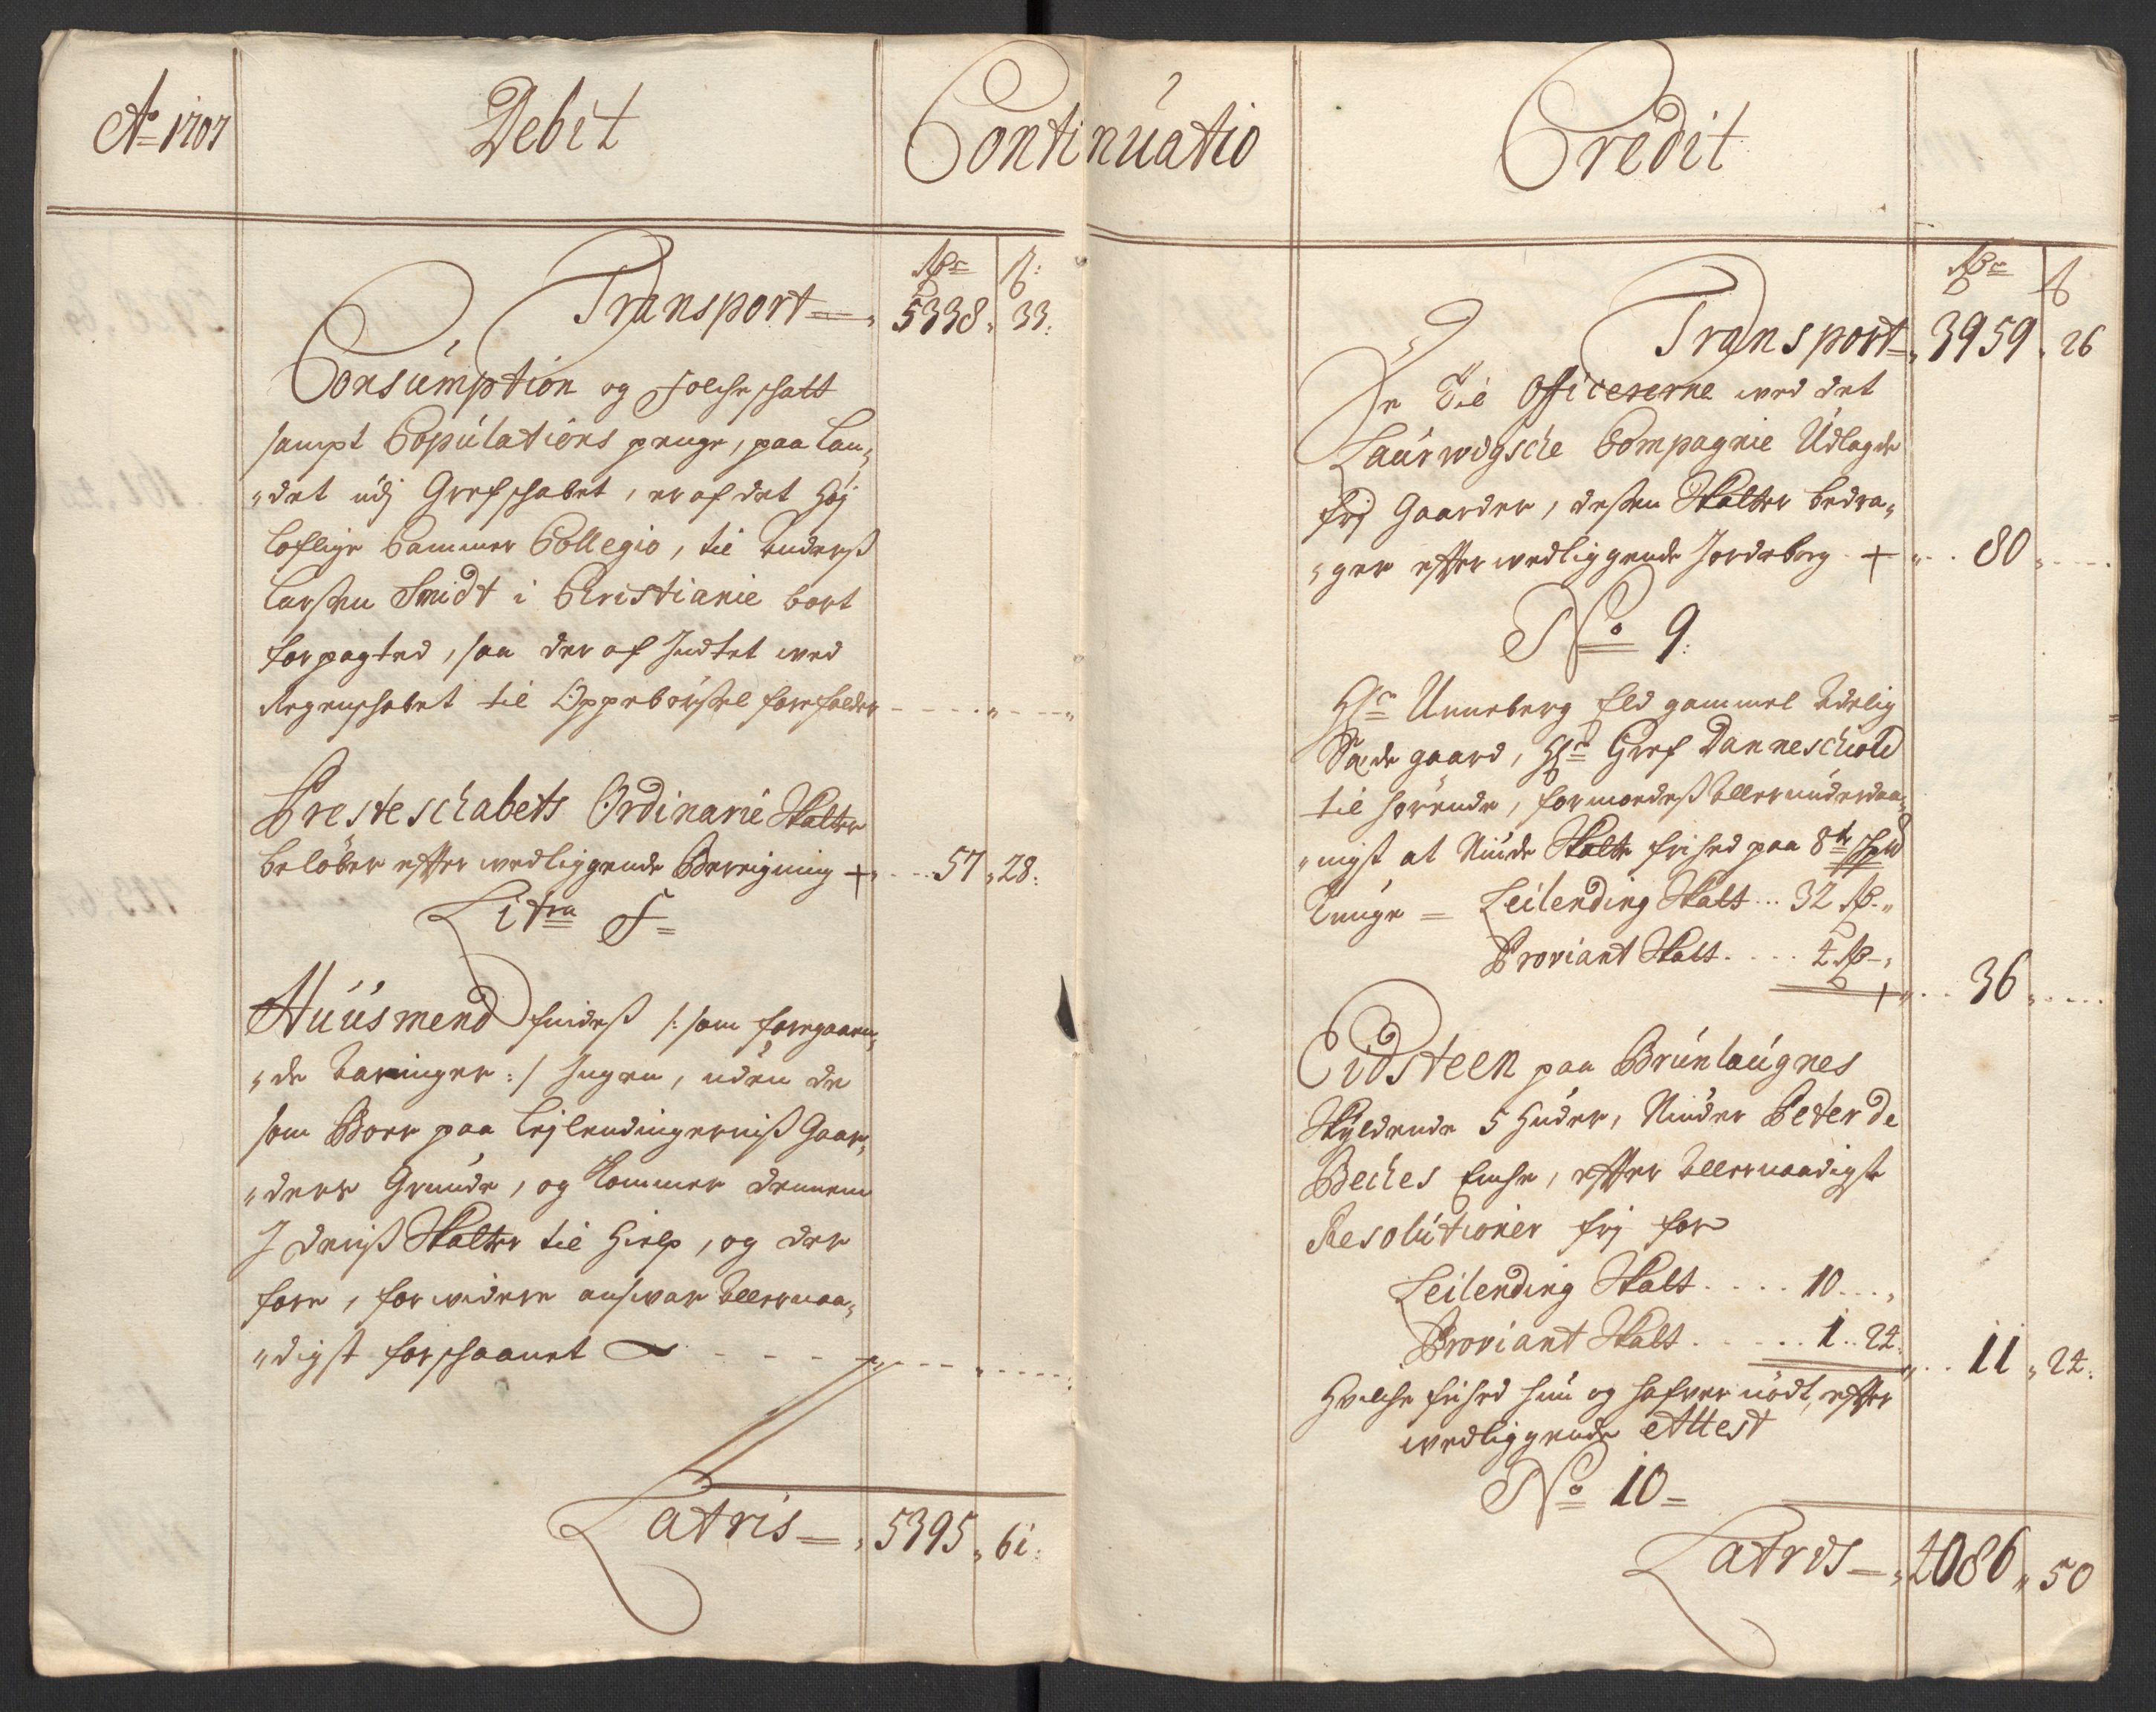 Ao 1707
Debit
Continuatio
Rdr ß:
Transport = 5338. 33.
Consumption og Folcheschatt
sampt Copulations penge, paa Lan„
„det udj Grefschabet, er af det Høj
loflige Cammer Collegio, til Anders
Larsen Smidt i Christianie bort
forpagted, saa der af Indtet ved
Regenschabet til Oppebørsel forefalder
Presteschabets Ordinarie Skatter
beløber efter vedliggende Beregning + 57. 28.
Litra F=
Huusmend findes /: som foregaaen„
„de :/ Ingen, uden de
som Boer paa Lejlendingernis Gaar„
„ders Grunde, og kommer dennem
I deris Skatter til Hielp, og der
fore, for videre ansvar Allernaa„
„digst forschaanet
Latris = 5395. 61.
Credit
Rdr ß
Transport = 3959. 26
De Til Officererne ved det
Laurwigsche Compagnie Udlagde
frj Gaarder, dessen Skatter bedra„
„ger efter vedliggende Jordebog + 80
No 9.
Hr Unneberg Eld gammel Adelig
Sæde gaard, Hr Gref Danneschiold
til hørende, formoedes Allerunderdaa„
„nigst at Niude Skatte frihed paa 8te
Tunge = Leilending Skatt ... 32 Rd.
Proviant Skatt .... 4 Rd
+ 36
Eidsteen paa Brunlaugnes
Skyldende 5 Huder, Niuder Peter de
Beches Enche, efter Allernaadigste
Resolutioner frj for
Leilending Skatt .... 10 ...
Proviant Skatt ..... 1 .. 24.
11. 24.
Hvilche frihed hun og hafver nødt, efter
vedliggende Attest
No 10=
Latris = 4086. 50